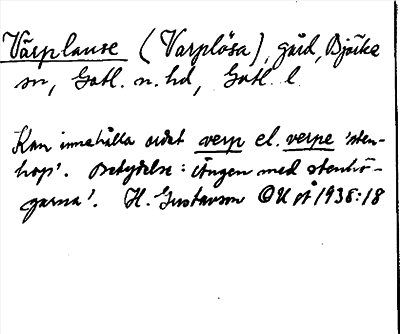 Värplause (Varplösa), gård, Bjärke
sn, Gotl. n. hd, Gotl. l.
Kan innehålla ordet verp el. verpe 'sten-
hop'. Betydelse: 'ängen med stenhö-
garna'. H. Gustavson GU på 1938:18